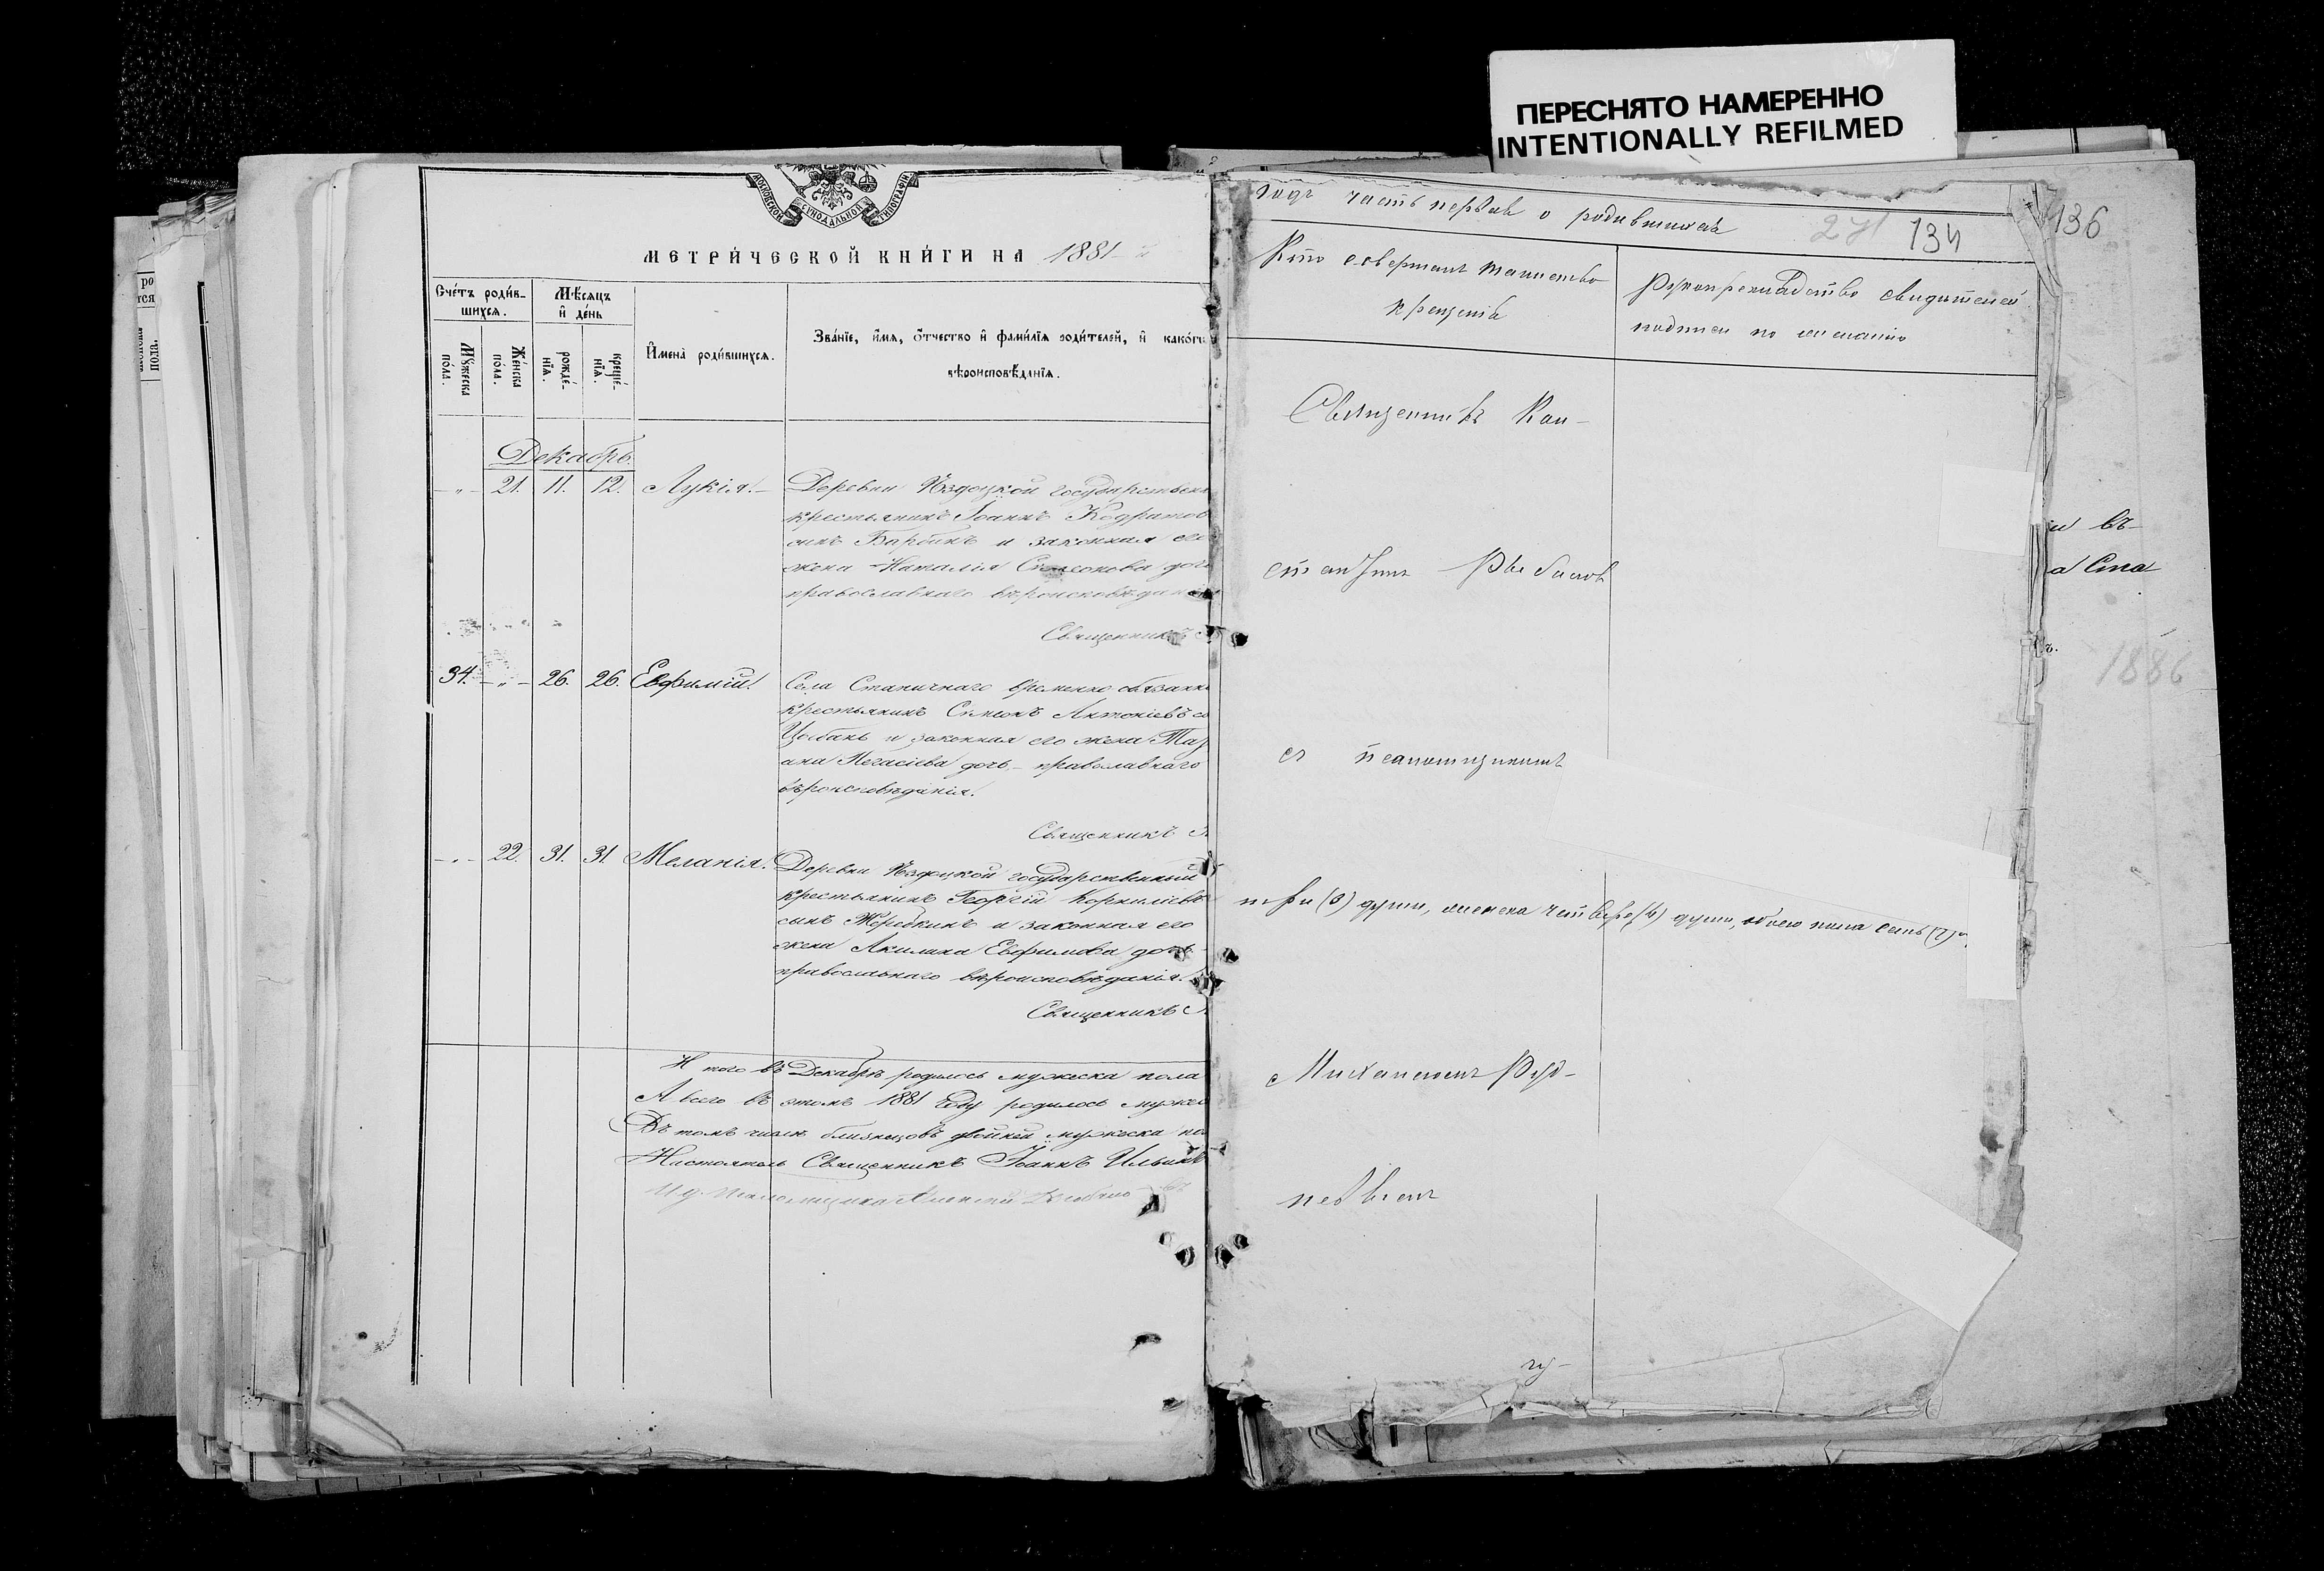 ПЕРЕСНЯТО НАМЕРЕННО
INTENTIONALLY REFILMED
МОСКОВСКОЙ СѴНОДАЛЬНОЙ ТИПОГРАФІИ
МЕТРИ́ЧЕСКОЙ КНИ́ГИ НА 1881
Счётъ роди́в-
шихся.
Мѣсяцъ
и день
Мужеска
пола.
Женска
пола.
рожде́-
нія.
креще́-
нія.
Имена роди́вшихся.
Зва́ніе, имя, о́тчество и фами́лія роди́телей, и како́го
вѣроисповѣданія.
Декабрь.
21. 11. 12. Лукія.
Деревни Ѣздоцкой государствен
крестьянинъ Іоаннъ Кодратов
сынъ Барбинъ и законная его
жена Наталія Симеонова доч
православнаго вѣроисповѣданія
Священникъ
34. 26. 26. Евфимій.
Села Станичнаго временно обязанн
крестьянинъ Симеонъ Антоніевъ с
Цыбань и законная его жена
дочь православнаго
вѣроисповѣданія.
Священникъ
22. 31. 31. Меланія.
Деревни Ѣздоцкой государственный
крестьянинъ Георгій Корниліевъ
сынъ Жеребкинъ и законная его
жена Акилина Евфимова дочь
православнаго вѣроисповѣданія.
Священникъ
Итого въ Декабрѣ родилось мужеска пола
А всего въ этомъ 1881 году родилось мужес
Въ томъ числѣ близнецовъ двойней мужеска по
Настоятель Священникъ Іоаннъ Ильинъ
И. д. Псаломщика Алексій
годъ часть первая о родившихся
271 134
136
Кто совершалъ таинство
крещенія
Рукоприкладство свидетелей
записи по желанію
Священникъ
съ псаломщикомъ
три (3) души, женска четыре (4) души, обоего пола семь (7)
Михаиломъ Руд-
невымъ
и въ
а Ста
1886